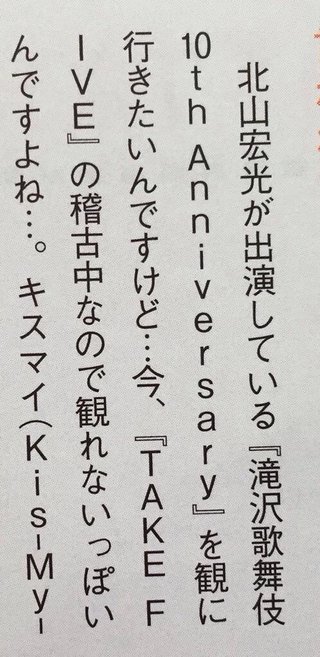 北山宏光が出演している『滝沢歌舞伎
10th Anniversary』を観に
行きたいんですけど…今、『TAKE F
IVE』の稽古中なので観れないっぽい
んですよね…。キスマイ(Kis-My-